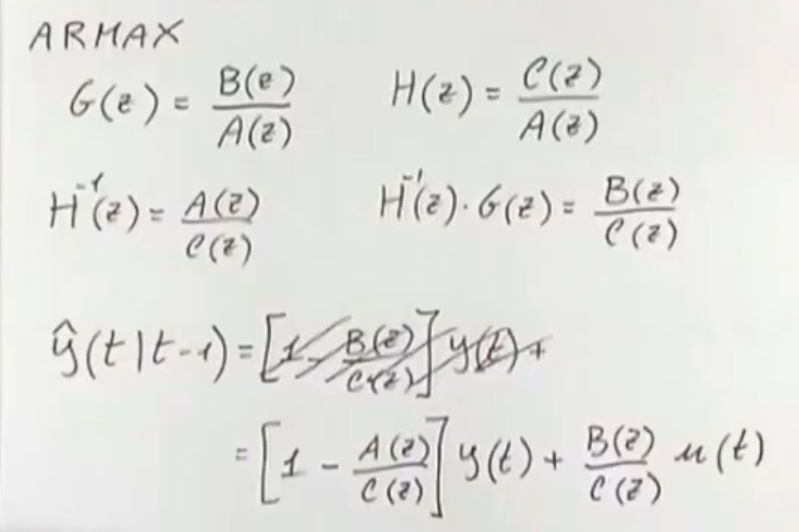 ARMAX
G(z) = B(z)/A(z) H(z) = C(z)/A(z)
H⁻¹(z) = A(z)/C(z) H⁻¹(z) · G(z) = B(z)/C(z)
ŷ(t|t-1) = [1 - B(z)/C(z)] y(t) +
= [1 - A(z)/C(z)] y(t) + B(z)/C(z) u(t)